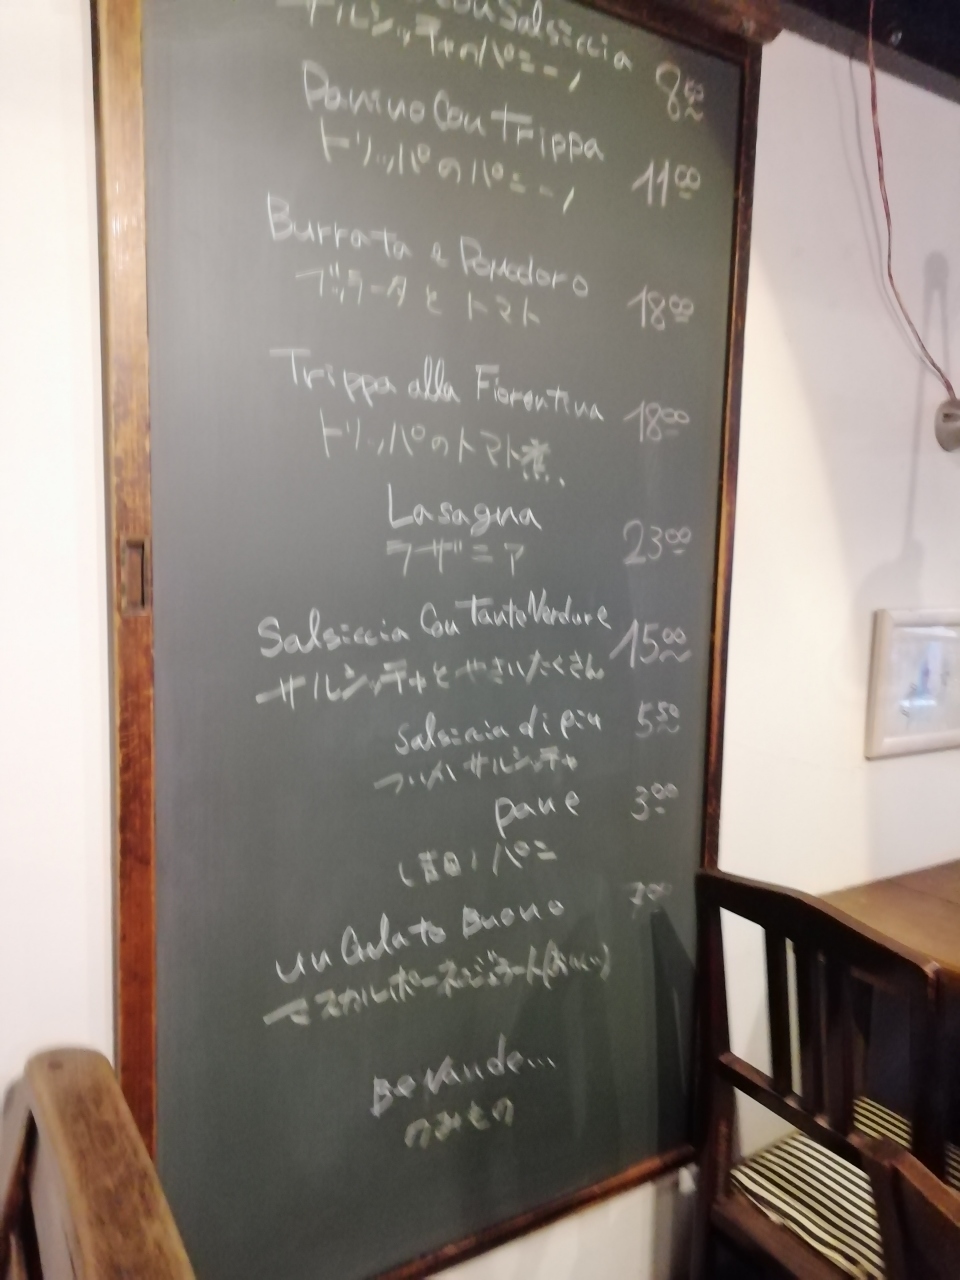 con Salsiccia
サルシッチャのパニーノ
8.50
Panino Con Trippa
トリッパのパニーノ
11.00
Burrata e Pomodoro
ブッラータとトマト
18.00
Trippa alla Fiorentina
トリッパのトマト煮
18.00
Lasagna
ラザニア
23.00
Salsiccia Con Tante Verdure
サルシッチャとやさいたくさん
15.00
Salsiccia di più
ついか サルシッチャ
5.50
pane
パニ
3.00
un Gelato Buono
マスカルポーネジェラート(おいしい)
Bevande...
のみもの